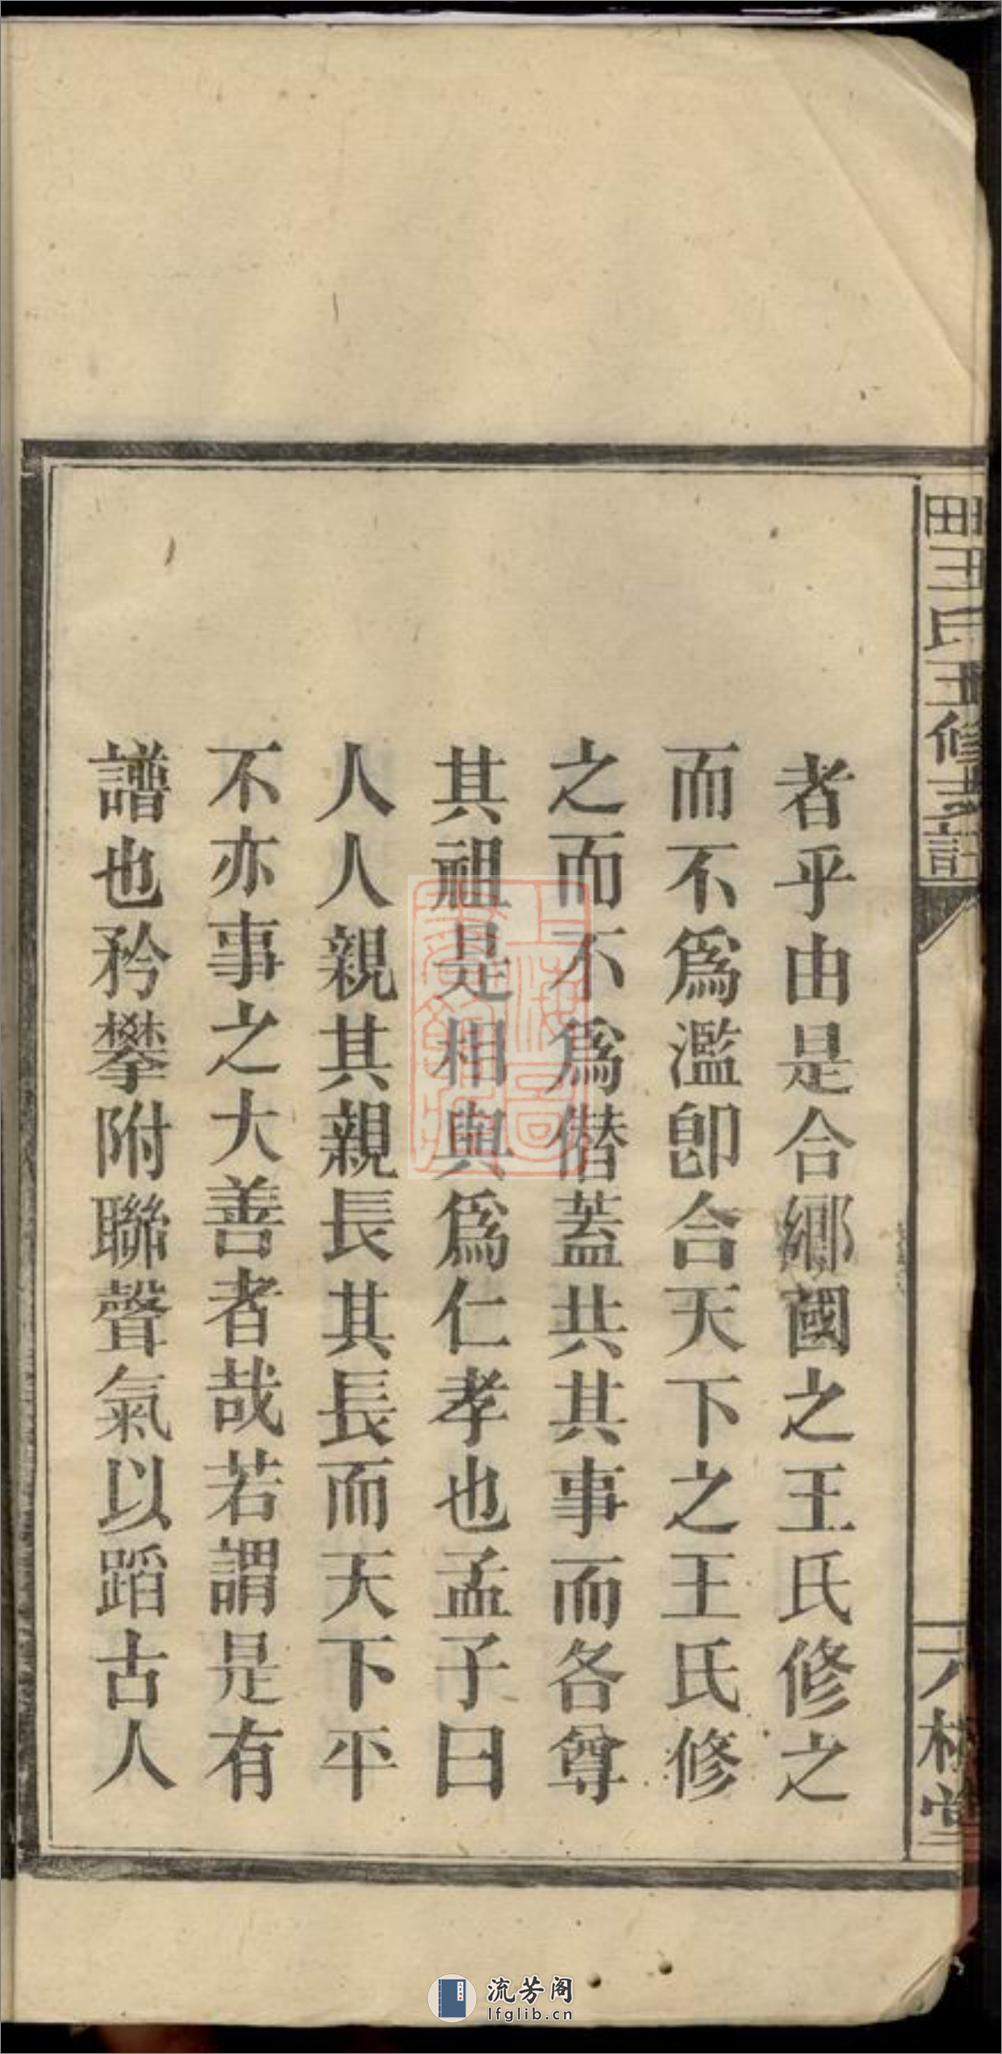 者乎由是合鄉國之王氏修之
而不爲濫卽合天下之王氏修
之而不爲僣蓋共其事而各尊
其祖是相與爲仁孝也孟子曰
人人親其親長其長而天下平
不亦事之大善者哉若謂是有
譜也矜攀附聯聲氣以蹈古人
田王氏五修支譜
槐堂
上海圖書館藏
流芳阁
lfglib.cn